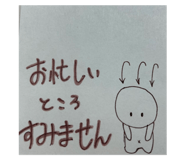 お忙しい
ところ
すみません